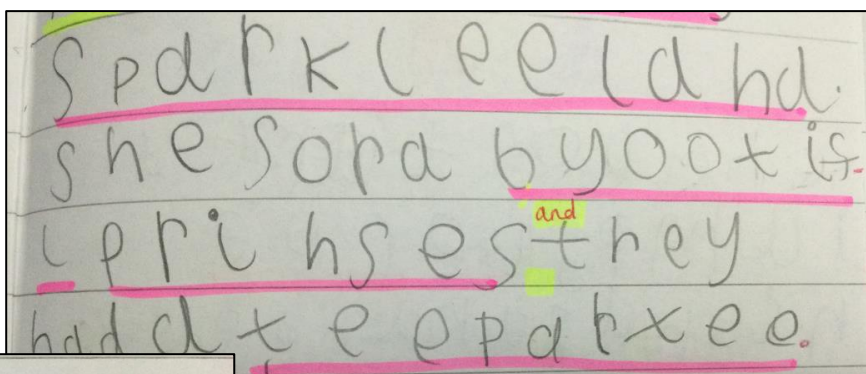 Sparkleeland.
she sora byootif
l prinses and they
had a teepartee.